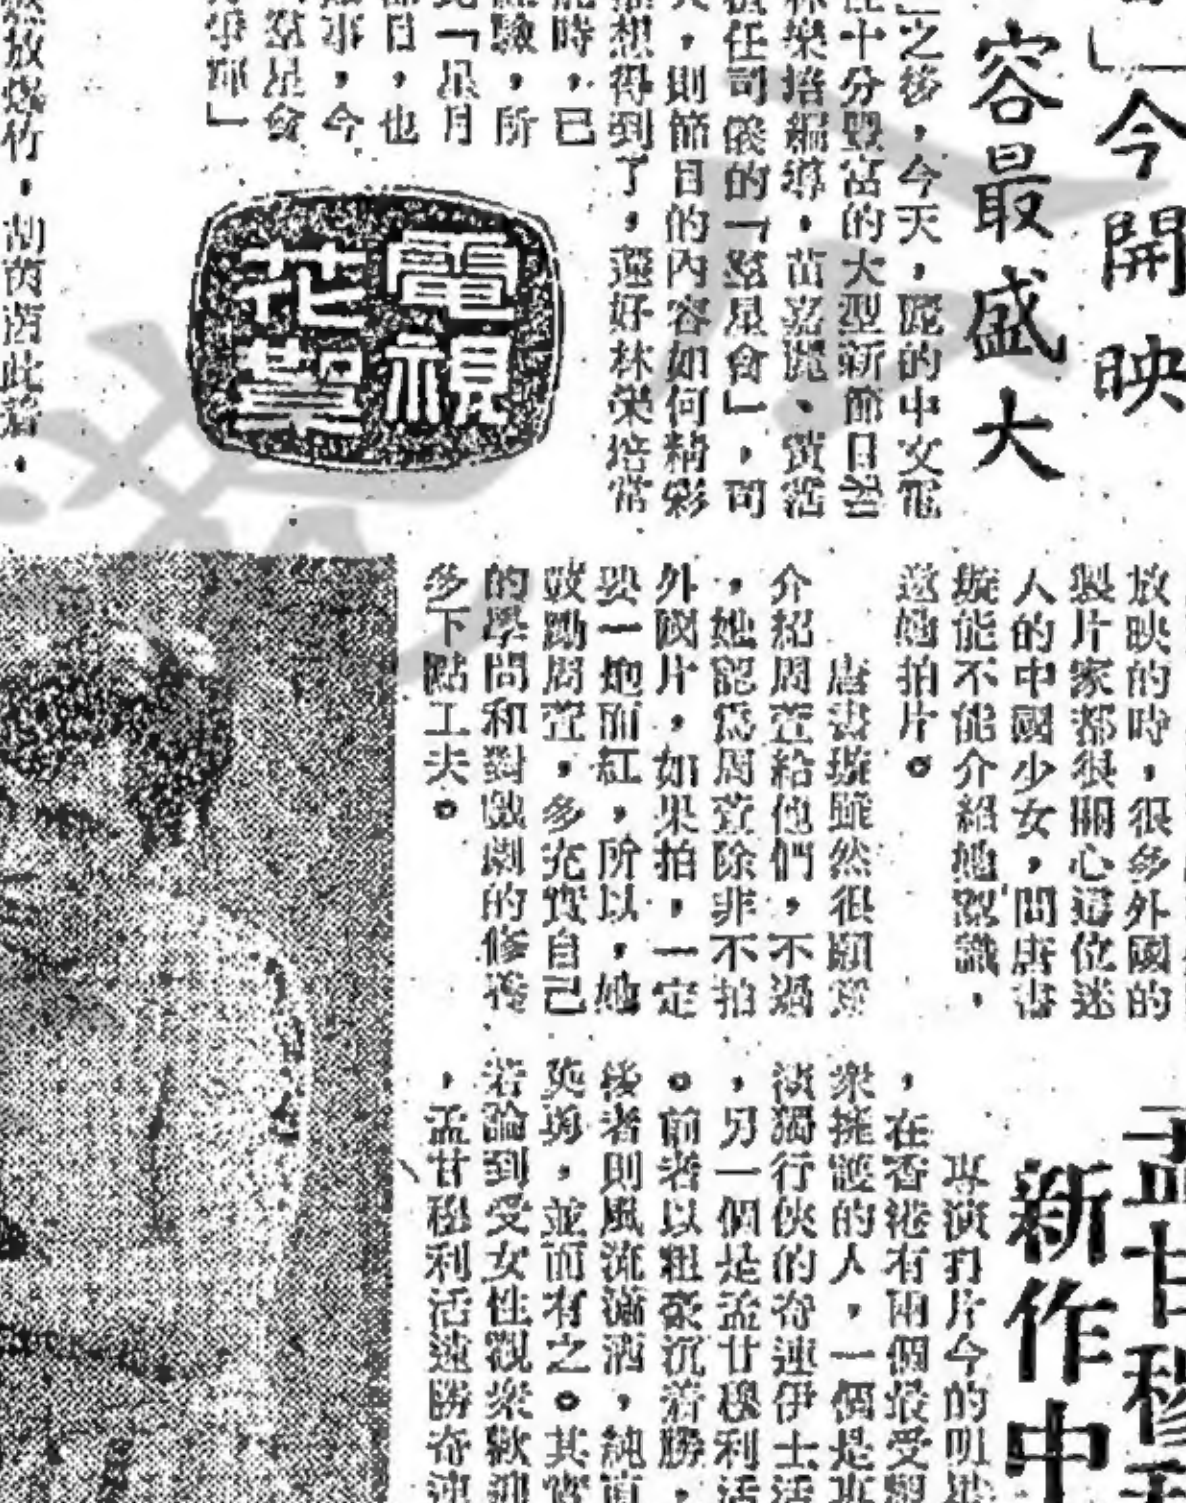 」今開映
容最盛大
」之後，今天，麗的中文電
十分豐富的大型新節目
樂培編導，苗嘉麗、黃
任司儀的「羣星會」，司
，則節目的內容如何精彩
想得到了，還好林榮培常
能時，已
驗，所
「星月
節目，也
事，今
羣星會
」
放爆竹，胡茵茵此
電視
花聲
放映的時，很多外國的
製片家都很關心這位迷
人的中國少女，問唐書
璇能不能介紹她認識，
邀她拍片。
唐書璇雖然很願意
介紹周萱給他們，不過
，她認爲周萱除非不拍
外國片，如果拍，一定
要一炮而紅，所以，她
鼓勵周萱，多充實自己
的學問和對戲劇的修養
多下點工夫。
孟甘穆
新作中
專演打片今的明星
，在香港有兩個最受觀
衆擁護的人，一個是專
演獨行俠的奇連伊士活
，另一個是孟甘穆利活
。前者以粗豪沉着勝，
後者則風流瀟洒，純直
英勇，並而有之。其實
若論到受女性觀衆歡迎
，孟甘穆利活遠勝奇連